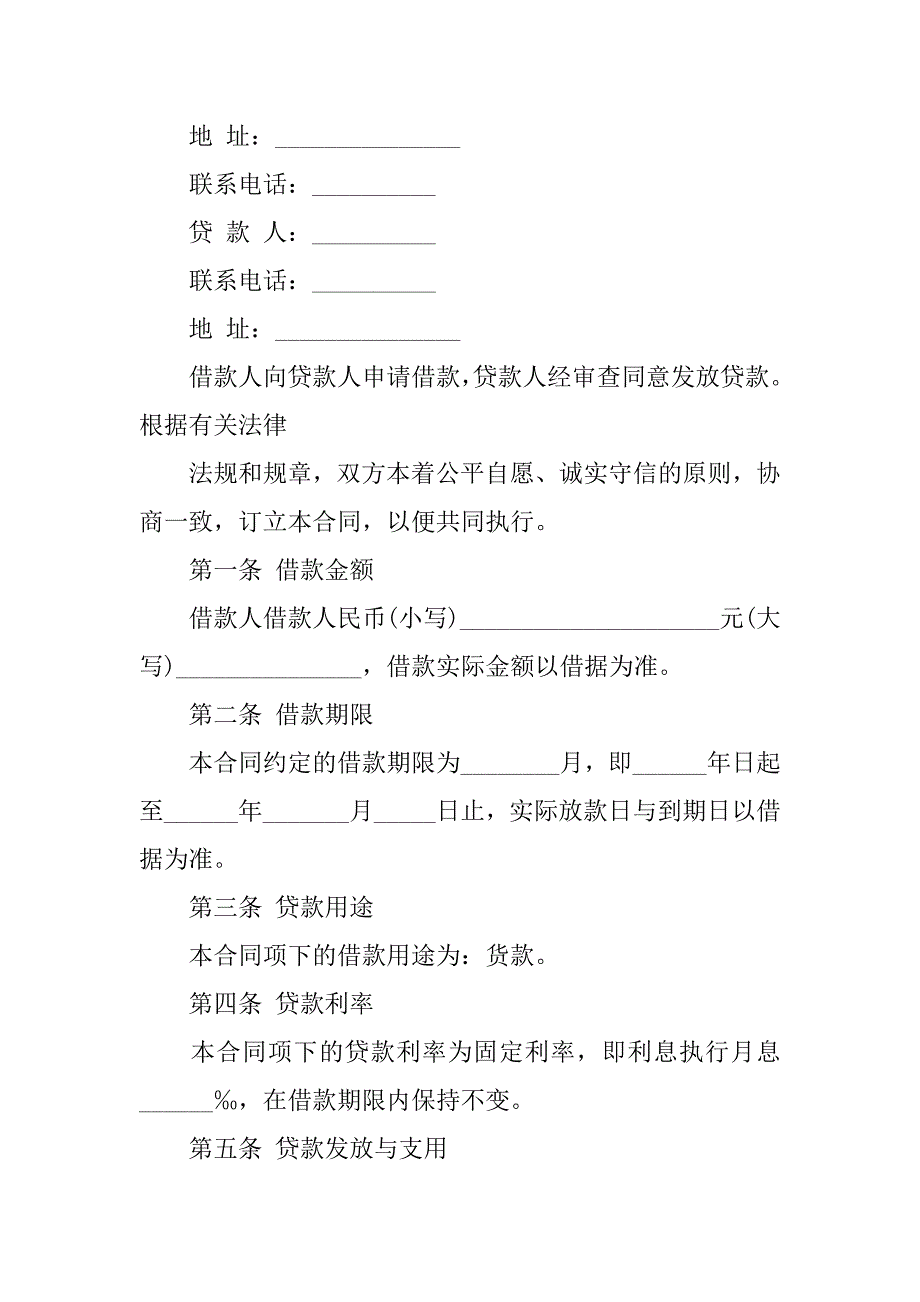 地 址：_______________
联系电话：__________
贷 款 人：__________
联系电话：__________
地 址：_______________
借款人向贷款人申请借款，贷款人经审查同意发放贷款。
根据有关法律
法规和规章，双方本着公平自愿、诚实守信的原则，协
商一致，订立本合同，以便共同执行。
第一条 借款金额
借款人借款人民币(小写)_____________________元(大
写)_______________，借款实际金额以借据为准。
第二条 借款期限
本合同约定的借款期限为________月，即______年日起
至______年_______月_____日止，实际放款日与到期日以借
据为准。
第三条 贷款用途
本合同项下的借款用途为：货款。
第四条 贷款利率
本合同项下的贷款利率为固定利率，即利息执行月息
______‰，在借款期限内保持不变。
第五条 贷款发放与支用